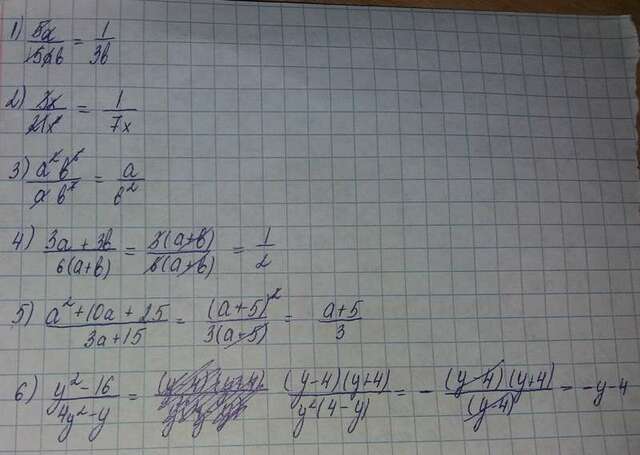 1) 5a/15ab = 1/3b
2) 3x/21x² = 1/7x
3) a²b²/ab² = a/b²
4) 3a + 3b/6(a+b) = 3(a+b)/6(a+b) = 1/2
5) a² + 10a + 25/3a + 15 = (a+5)²/3(a+5) = a+5/3
6) y² - 16/4y² - y = (y-4)(y+4)/y²(4-y) = - (y-4)(y+4)/(y-4) = -y-4